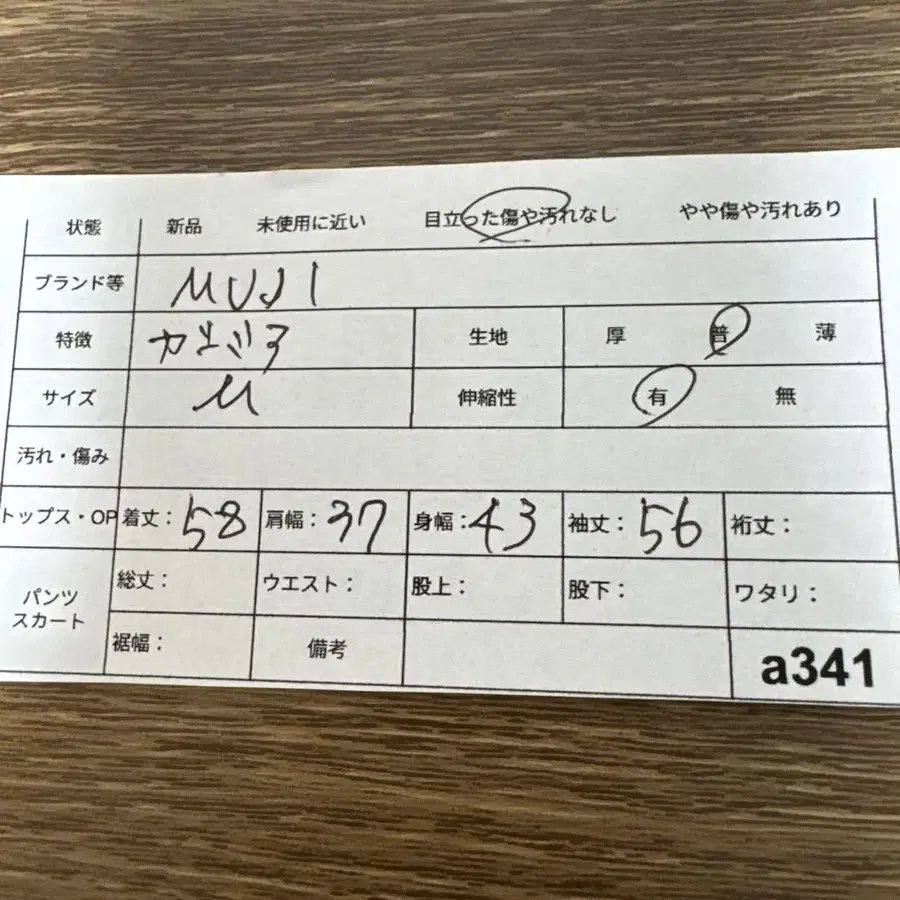 状態 新品 未使用に近い 目立った傷や汚れなし やや傷や汚れあり
ブランド等 MUJI
特徴 生地 厚 普 薄
サイズ M 伸縮性 有 無
汚れ・傷み
トップス・OP 着丈：58 肩幅：37 身幅：43 袖丈：56 裄丈：
パンツ スカート 総丈： ウエスト： 股上： 股下： ワタリ：
裾幅： 備考 a341